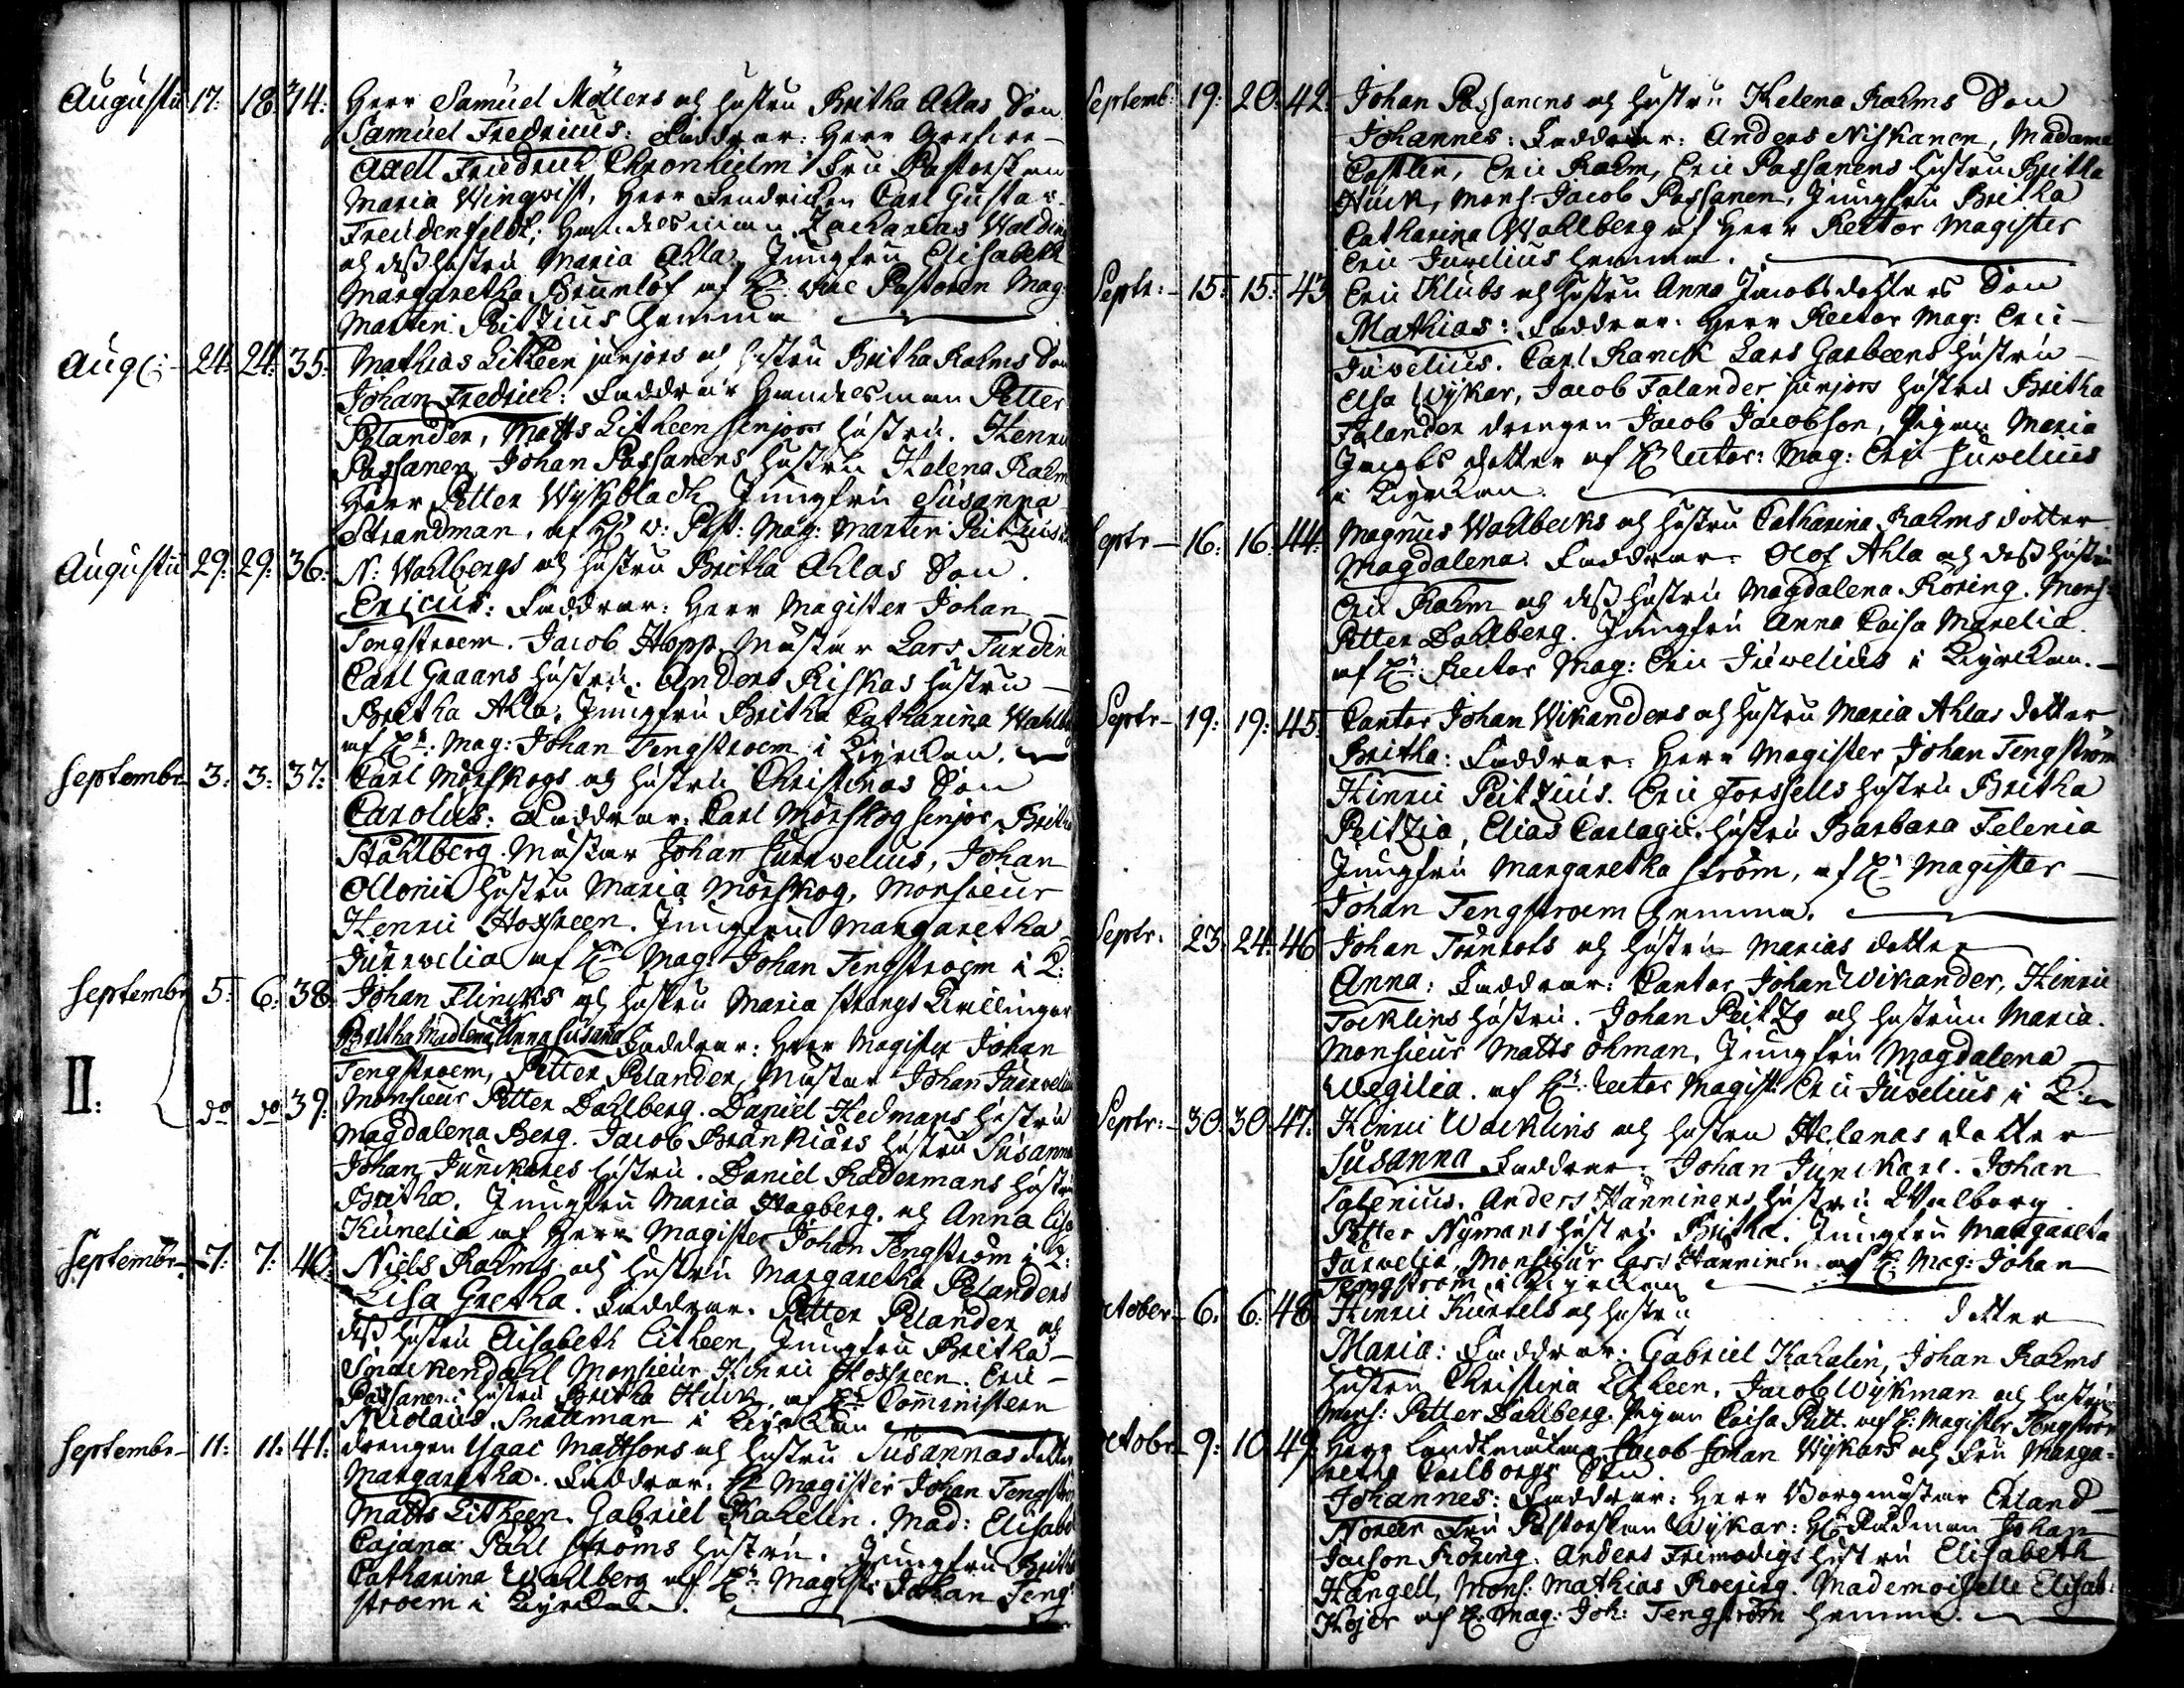 Augusti 17: 18: 34: Herr Samuel Möllers och hustru Britha Ahlas Son
Samuel Fredricus: Faddrar: Herr
Axell Friedrich Chronhielm Fru Pastorskan
Maria Wingqvist, Herr Fendricken Carl Gustav
Freüdenfeldt; Handelsman Zacharias Waldin
och dess hustru Maria Ahla. Jungfru Elisabeth
Margaretha Brunlöf af Hr vice Pastoren Mag:
Marten Peitzius hemma
Aug: 24: 24: 35: Mathias Litheen junjors och hustru Britha Rahms Son
Johan Fredrich: Faddrar Handelsman Petter
Pelander, Matts Litheen senjors hustru. Henric
Passanen, Johan Passanens hustru Halena Rahm
Herr Petter Wijkbladh Jungfru Susanna
Strandman, af Hr v: Past: Mag: Marten Peitzius
Augusti 29: 29: 36: N: Wahlbergs och hustru Britha Ahlas Son.
Ericus: Faddrar: Herr Magister Johan
Tengstroem. Jacob Hopp Mästar Lars Tundin
Carl Graans hustru. Anders Riskas hustru
Britha Ahla, Jungfru Britha Catharina Wahlberg
af Hr: Mag: Johan Tengstroem i Kyrckan.
Septembr 3: 3: 37: Carl Mörskogs och hustru Christinas Son
Carolus: Faddrar: Carl Mörskog senjor, Britha
Ståhlberg. Mästar Johan Juurwelius, Johan
Ollonis hustru Maria Mörskog, Monsieur
Henric Hoffreen. Jungfru Margaretha
Juurwelia af Hr Mag: Johan Tengstroem i K:
Septembr 5: 6: 38: Johan Flincks och hustru Maria Strangs Twillingar
Britha Madlena, och Anna Susanna Faddrar: Herr Magister Johan
Tengstroem, Petter Pelander, Mästar Johan Juurvelius
II: do do 39: Monsieur Petter Dahlberg. Daniel Hedmans hustru
Magdalena Berg. Jacob Brankiärs hustru Susanna
Johan Junckares hustru. Daniel Rådermans hustru
Britha. Jungfru Maria Hagberg. och Anna Lisa
Kunelia af Herr Magister Johan Tengström i K:
Septembr 7: 7: 40: Niels Rahms och hustru Margaretha Pelanders
Lisa Gretha. Faddrar. Petter Pelander och
dess hustru Elisabeth Litheen, Jungfru Britha
Snackendahl Monsieur Hinric Hoffreen. Eric
Passanens hustru Britha Huck, af Hr Comministern
Nicolaus Snälleman i Kyrckan
Septembr 11: 11: 41: drengen Isaac Mattsons och hustru Susannas dotter
Margaretha. Faddrar. Hr Magister Johan Tengström
Matts Litheen. Gabriel Kahelin. Mad: Elisabet
Cajana Pahl Ströms hustru. Jungfru Britha
Catharina Wahlberg af Hr Magistr: Johan Teng
stroem i Kyrckan.
Septemb: 19: 20: 42: Johan Passanens och hustru Helena Rahms Son
Johannes: Faddrar: Anders Niskanen, Madame
Castlin, Eric Rahm, Eric Passanens hustru Britha
Huck, Mons. Jacob Passanen, Jungfru Britha
Catharina Wahlberg af Herr Rector Magister
Eric Juvelius hemma.
Septr: 15: 15: 43 Eric Klubs och hustru Anna Jacobsdotters Son
Mathias: Faddrar: Herr Rector Mag: Eric
Juvelius. Carl Ranck Lars Garbeens hustru
Elsa Wijkar, Jacob Falander junjors hustru Britha
Falander drengen Jacob Jacobson, Pigan Maria
Jacobsdotter af Hr Rector: Mag: Eric Juvelius
i Kyrckan.
Septr 16: 16: 44: Magnus Wahlbecks och hustru Catharina Rahms dotter
Magdalena: Faddrar: Olof Ahla och dess hustru
Eric Rahm och dess hustru Magdalena Roring. Mons:
Petter Dahlberg. Jungfru Anna Caisa Marelia.
af Hr: Rector Mag: Eric Juwelius i Kyrckan.
Septr 19: 19: 45: Cantor Johan Wikanders och hustru Maria Ahlas dotter
Britha: Faddrar: Herr Magister Johan Tengström
Hinric Peitzius. Eric Forssells hustru Britha
Peitzia, Elias Carlagi. hustru Barbara Telenia
Jungfru Margaretha Ström, af Hr Magister
Johan Tengstroem hemma.
Septr: 23: 24: 46 Johan Törnrots och hustru Marias dotter
Anna: Faddrar: Cantor Johan Wikander, Hinric
Tocklins hustru. Johan Peitzg och hustrun Maria.
Monsieur Matts Öhman, Jungfru Magdalena
Wegilia. af Hr: Rector Magist: Eric Juvelius i K:
Septr: 30: 30: 47: Hinric Wacklins och hustru Helenas dotter
Susanna Faddrar: Johan Junckare. Johan
Salenius. Anders Hanninens hustru Walborg
Petter Nymans hustru Britha. Jungfru Margareta
Jurvelia, Monsieur Lars Hanninen af Hr: Mag: Johan
Tengström i Kyrckan
October 6: 6: 48 Hinric Kurtels och hustru dotter
Maria: Faddrar. Gabriel Kahalin, Johan Rahms
hustru Christina Litheen, Jacob Wijkman och hustru
Mons: Petter Dahlberg. Pigan Caisa Pett. af Hr: Magister Tengström
Octobr 9: 10: 49 Herr Jacob Johan Wijkars och Fru Marga-
retha Carlborgs Son
Johannes: Faddrar: Herr Borgmästar Erland
Noreen Fru Pastorskan Wijkar: Hr Rådman Johan
Jacson Roring. Anders Frimodigs hustru Elisabeth
Hangell, Mons: Mathias Roering. Mademoiselle Elisab:
Höjer af Hr: Mag: Joh: Tengström hemma.